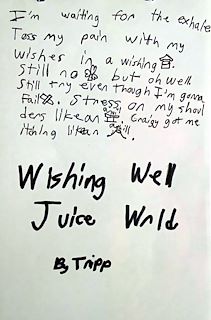 I'm waiting for the exhale
Toss my pain with my
wishes in a wishing
Still no but oh well
Still try even though I'm gonna
Fail. Stress on my shoul
ders like an. Craigy got me
itching like an
Wishing Well
Juice Wrld
By Tripp